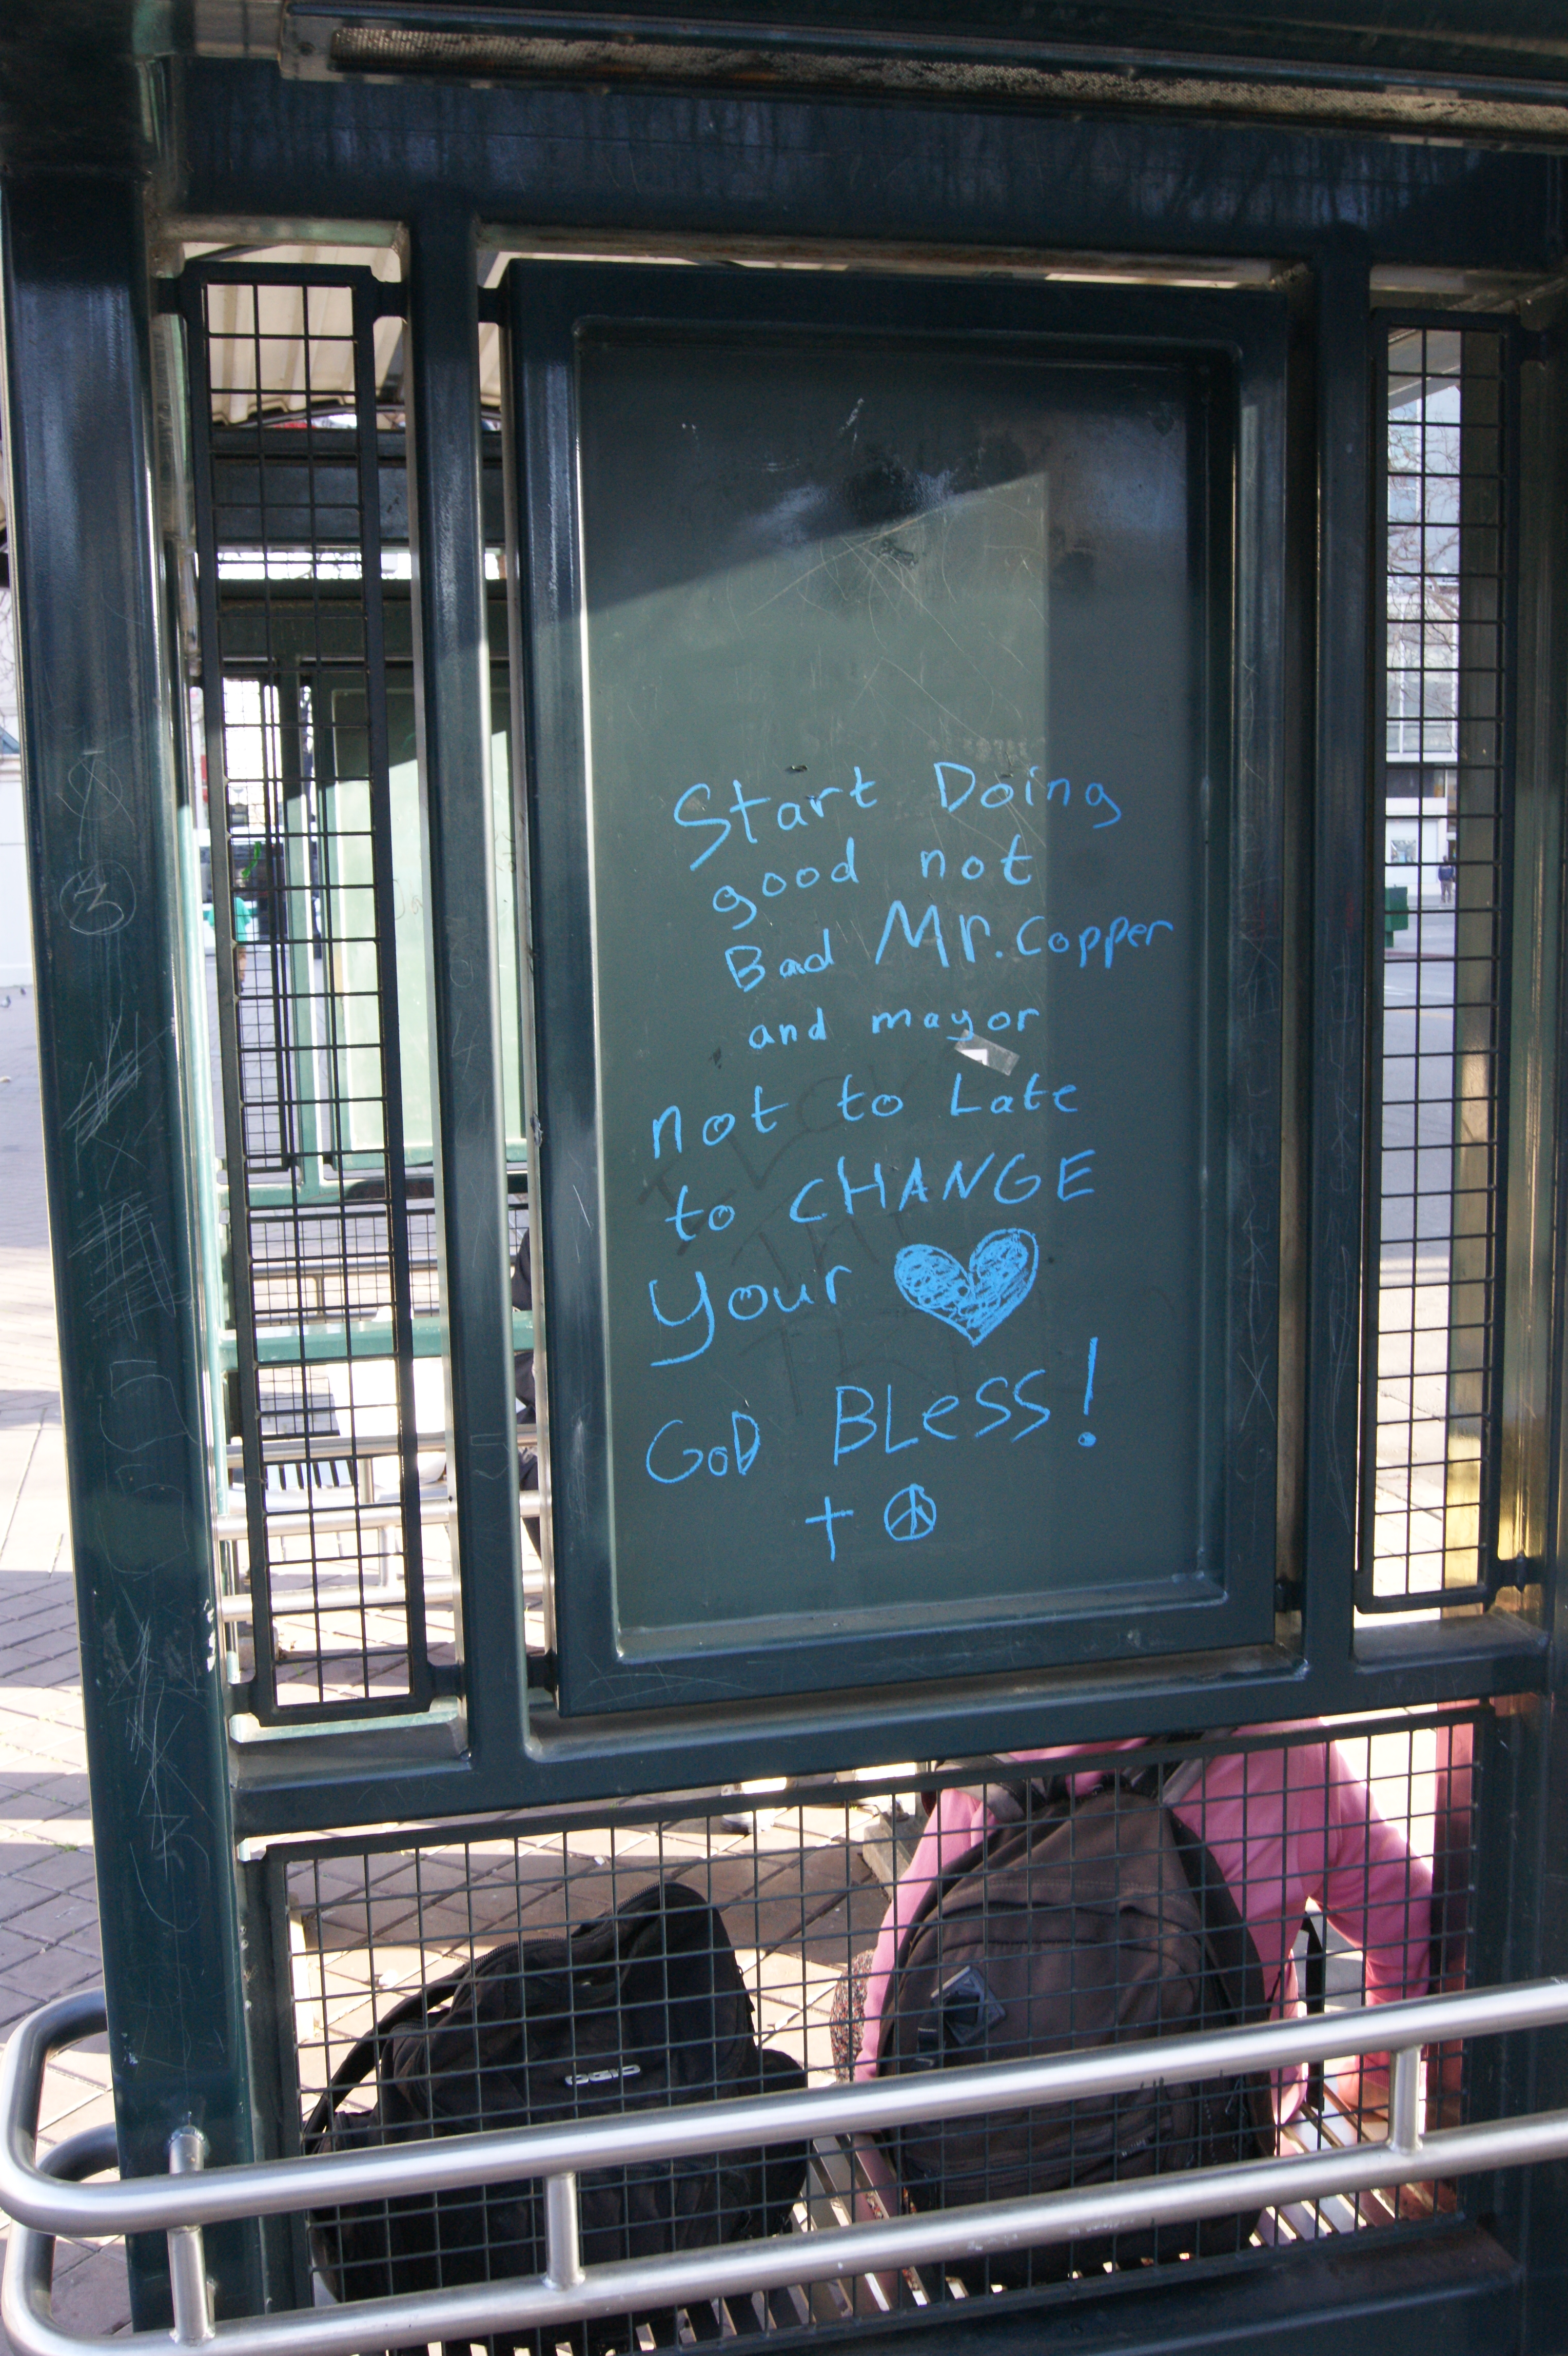 Start Doing
good not
Bad Mr. Copper
and mayor
not to Late
to CHANGE
your
GOD BLeSS!
OGIO